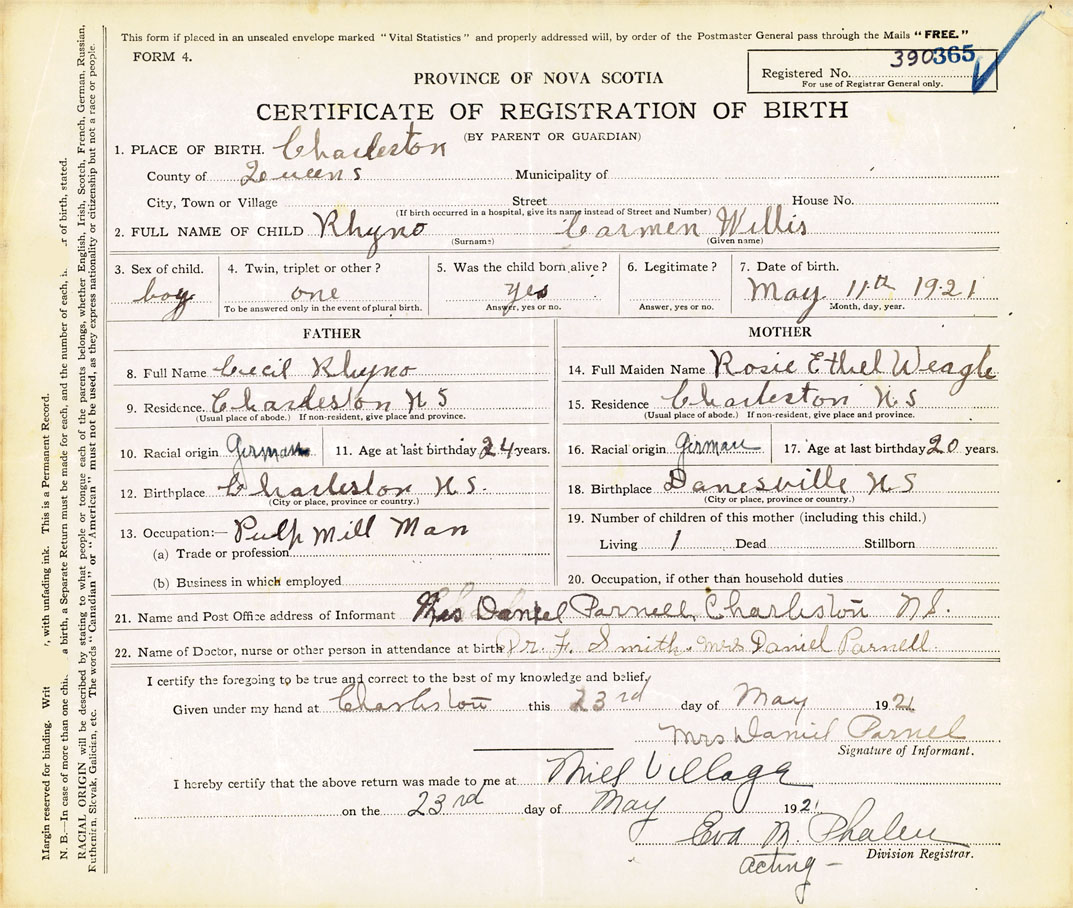 This form if placed in an unsealed envelope marked "Vital Statistics" and properly addressed will, by order of the Postmaster General pass through the Mails "FREE."
FORM 4.
390365
Registered No.
For use of Registrar General only.
PROVINCE OF NOVA SCOTIA
CERTIFICATE OF REGISTRATION OF BIRTH
(BY PARENT OR GUARDIAN)
1. PLACE OF BIRTH. Charleston
County of Queens Municipality of
City, Town or Village Street House No.
(If birth occurred in a hospital, give its name instead of Street and Number)
2. FULL NAME OF CHILD Rhyno Carmen Willis
(Surname) (Given name)
3. Sex of child. 4. Twin, triplet or other? 5. Was the child born alive? 6. Legitimate? 7. Date of birth.
boy one yes May 11th 1921
To be answered only in the event of plural birth. Answer, yes or no. Answer, yes or no. Month, day, year.
FATHER
8. Full Name Cecil Rhyno
9. Residence. Charleston N S
(Usual place of abode.) If non-resident, give place and province.
10. Racial origin German 11. Age at last birthday 24 years.
12. Birthplace Charleston N.S.
(City or place, province or country.)
13. Occupation:— Pulp Mill Man
(a) Trade or profession
(b) Business in which employed
MOTHER
14. Full Maiden Name Rosie Ethel Weagle
15. Residence Charleston N.S
(Usual place of abode.) If non-resident, give place and province.
16. Racial origin German 17. Age at last birthday 20 years.
18. Birthplace Danesville N S
(City or place, province or country.)
19. Number of children of this mother (including this child.)
Living 1 Dead Stillborn
20. Occupation, if other than household duties
21. Name and Post Office address of Informant Mrs Daniel Parnell, Charleston N.S.
22. Name of Doctor, nurse or other person in attendance at birth Dr. F. Smith. Mrs Daniel Parnell.
I certify the foregoing to be true and correct to the best of my knowledge and belief,
Given under my hand at Charleston this 23rd day of May 1921
Mrs Daniel Parnel
Signature of Informant.
I hereby certify that the above return was made to me at Mill Village
on the 23rd day of May 192
Eva M. Phalen
acting — Division Registrar.
Margin reserved for binding. Writ , with unfading ink. This is a Permanent Record.
N. B.—In case of more than one chi a birth, a Separate Return must be made for each, and the number of each, of birth, stated.
RACIAL ORIGIN will be described by stating to what people or tongue each of the parents belongs, whether English, Irish, Scotch, French, German, Russian,
Ruthenian, Slovak, Galician, etc. The words "Canadian" or "American" must not be used, as they express nationality or citizenship but not a race or people.